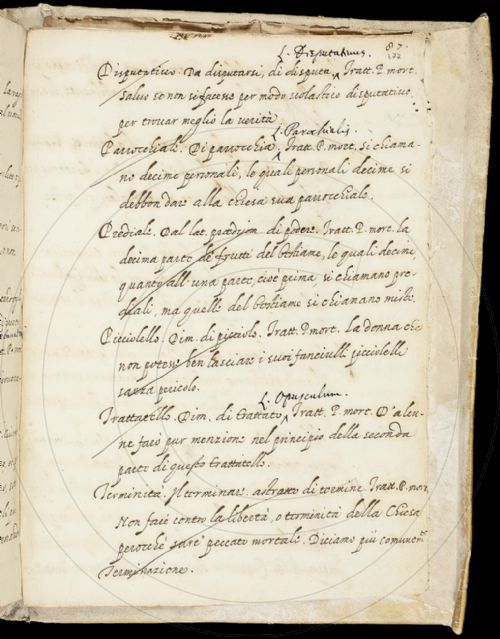 L. Disputativus. 87.
172
Disputativo. Da disputarsi, di disputa. Tratt. P. mort.
salvo se non si facesse per modo scolastico disputativo
per trovar meglio la verità.
L. Parochialis.
Parrocchiale. Di parrocchia. Tratt. P. mort. si chiama-
no decime personali, le quali personali decime si
debbon dare alla chiesa sua parrocchiale.
Prediale. Dal lat. praedium. di podere. Tratt. P. mort. la
decima parte de' frutti del bestiame, le quali decime,
quanto all' una parte, cioè prima, si chiamano pre-
diali, ma quelle del bestiame si chiamano miste.
Picciolello. Dim. di picciolo. Tratt. P. mort. La donna che
non potesse ben lasciare i suoi fanciulli picciolelli
sanza pericolo.
L. Opusculum.
Trattatello. Dim. di trattato. Tratt. P. mort. D' alcu-
ne feci pur menzione nel principio della seconda
parte di questo trattatello.
Terminità. Il terminare. astratto di termine. Tratt. P. mort.
Non fare contro la libertà, o terminità della Chiesa
perocchè sare' peccato mortale. Diciamo più comunem.te
Terminazione.